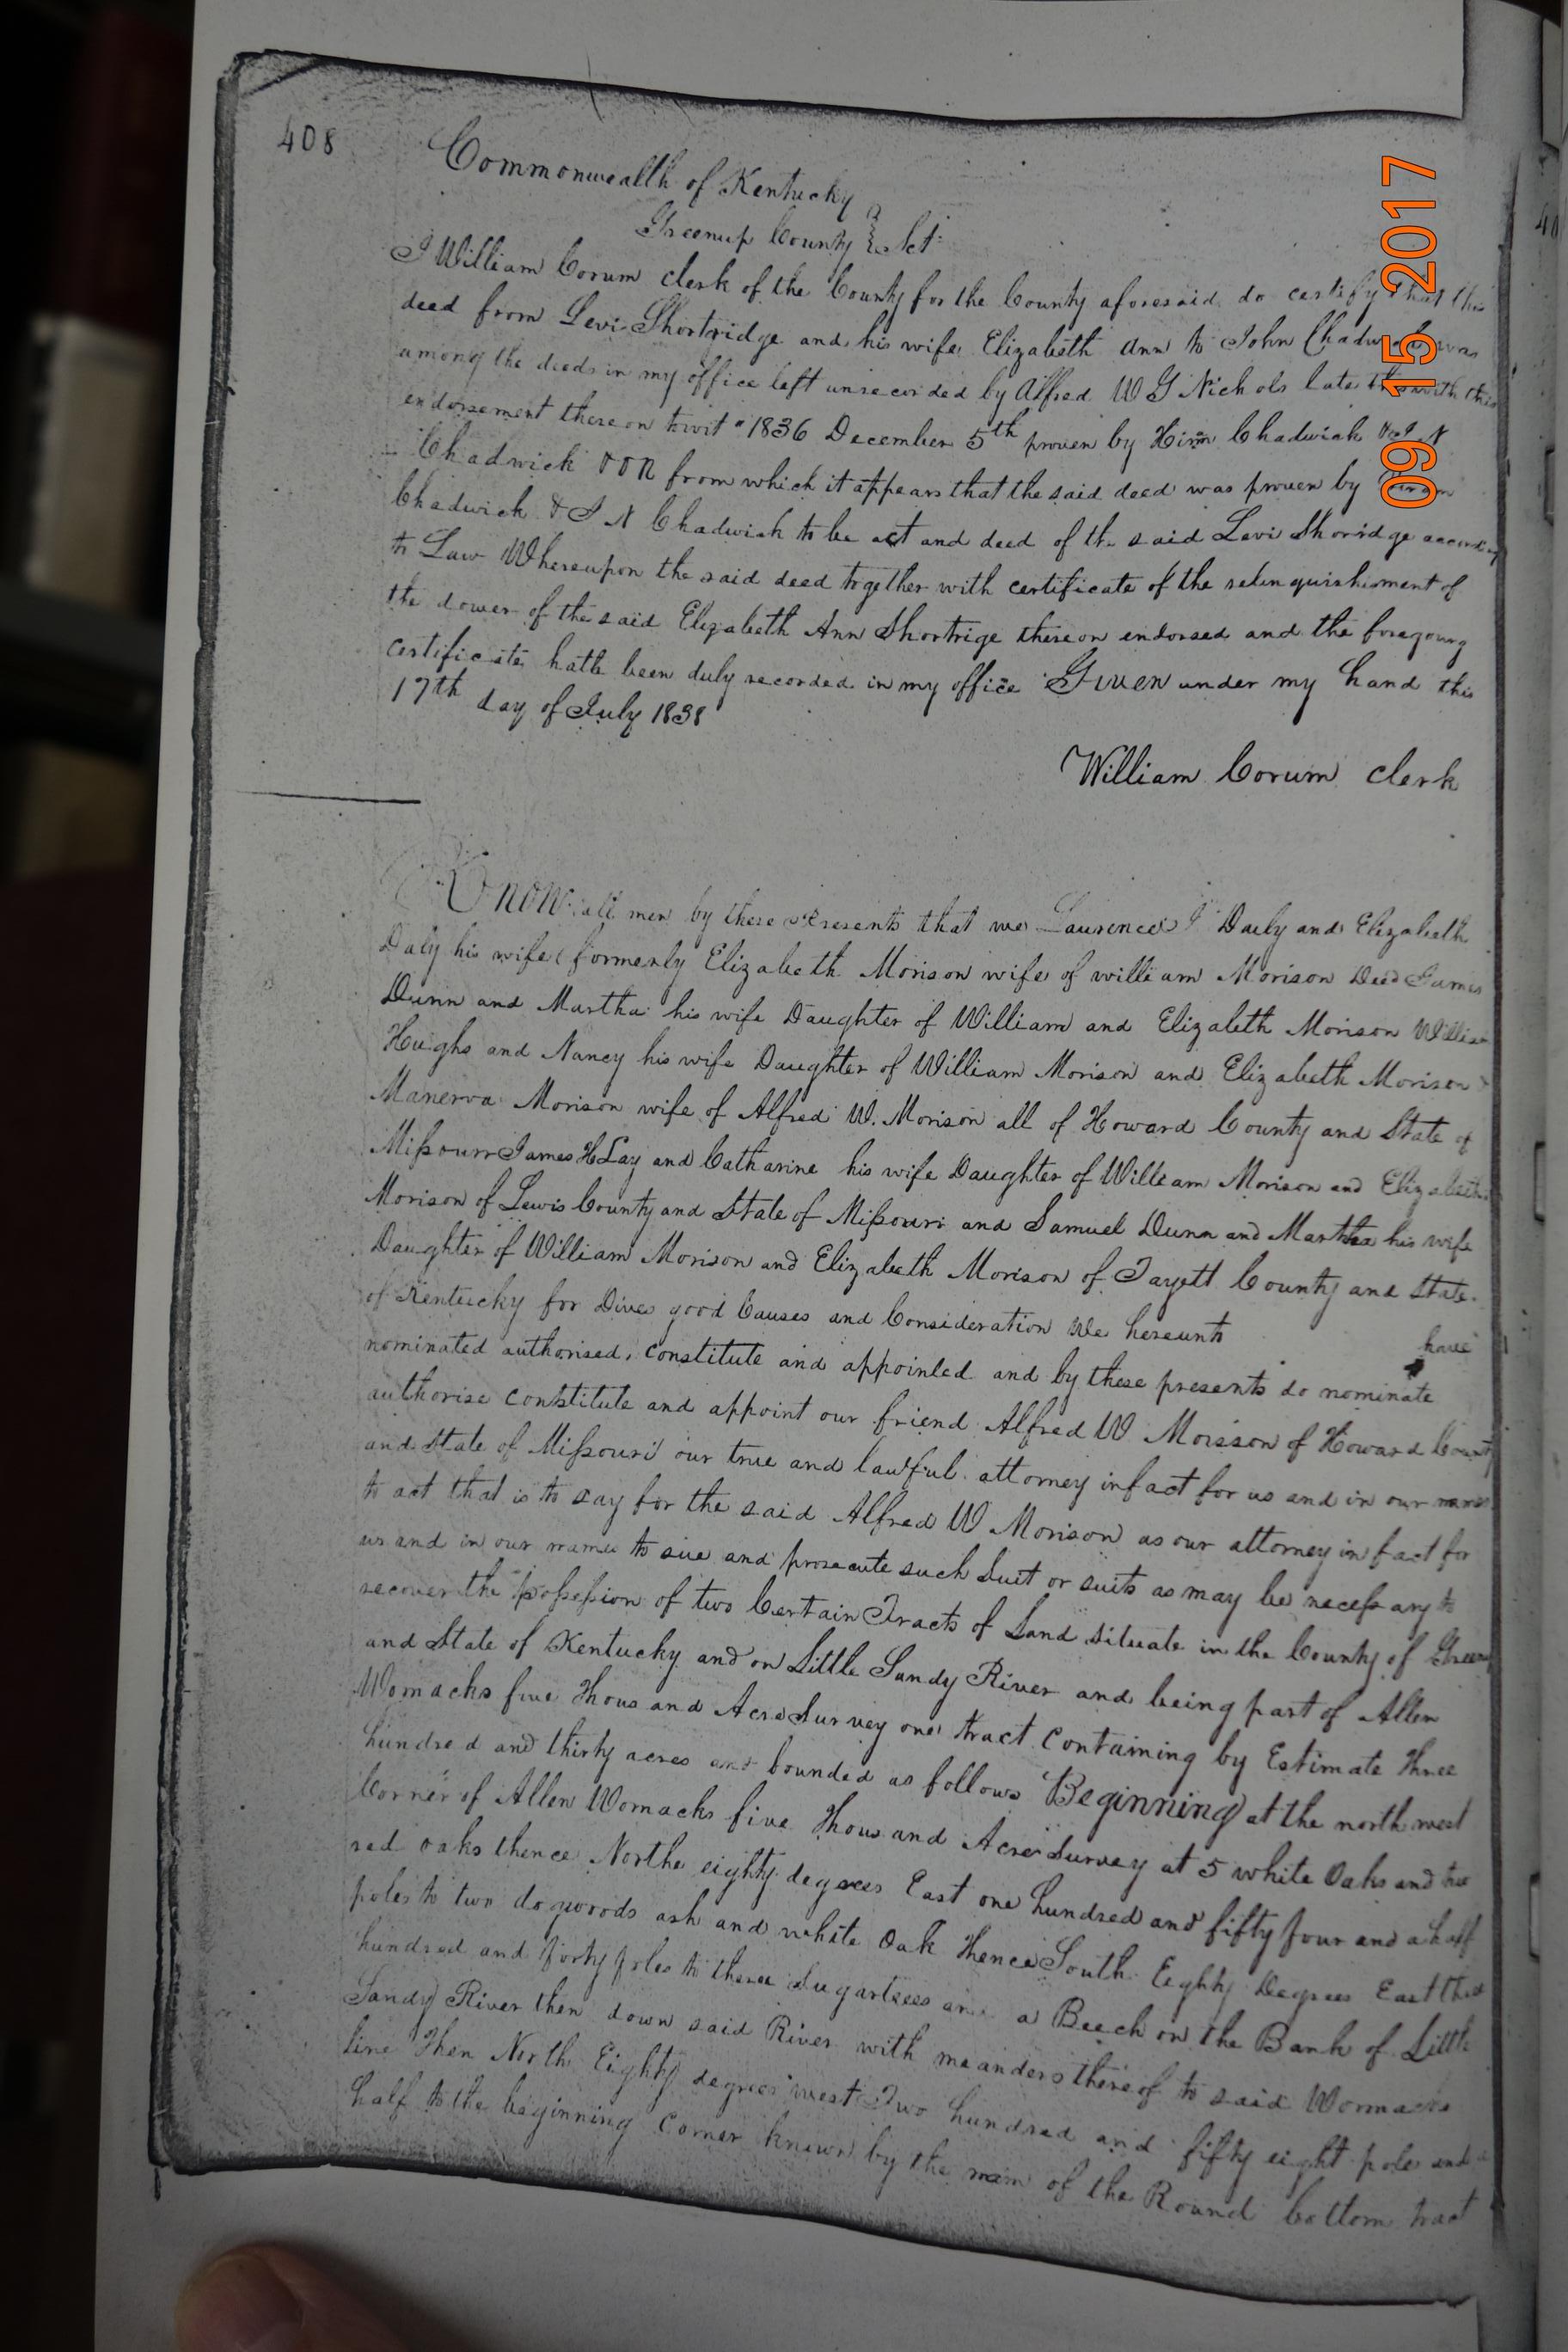 408
Commonwealth of Kentucky
Greenup County Sct
I William Corum clerk of the County for the County aforesaid do certify that this
deed from Levi Shortridge and his wife Elizabeth Ann to John Chadwick was
among the deeds in my office left unrecorded by Alfred W G Nichols late with this
endorsement thereon towit " 1836 December 5th proven by Hirm Chadwick & I N
Chadwick from which it appears that the said deed was proven by Hiram
Chadwick & I N Chadwick to be act and deed of the said Levi Shoridge according
to Law Whereupon the said deed together with certificate of the relinquishment of
the dower of the said Elizabeth Ann Shortrige thereon endorsed and the foregoing
certificate hath been duly recorded in my office Given under my hand this
17th day of July 1838
William Corum Clerk
Know all men by these Presents that we Laurence Daily and Elizabeth
Daly his wife (formerly Elizabeth Morison wife of william Morison Decd James
Dunn and Martha his wife Daughter of William and Elizabeth Morison William
Hughs and Nancy his wife Daughter of William Morison and Elizabeth Morison &
Manerva Morison wife of Alfred W. Morison all of Howard County and State of
Missouri James H Lay and Catharine his wife Daughter of William Morison and Elizabeth
Morison of Lewis County and State of Missouri and Samuel Dunn and Martha his wife
Daughter of William Morison and Elizabeth Morison of Fayett County and State
of Kentucky for Dives good Causes and Consideration We hereunto have
nominated authorised, constitute and appointed and by these presents do nominate
authorise constitute and appoint our friend Alfred W Morison of Howard County
and State of Missouri our true and lawful attorney in fact for us and in our names
to act that is to say for the said Alfred W Morison as our attorney in fact for
us and in our names to sue and prosecute such Suit or suits as may be necessary to
recover the possession of two Certain Tracts of Land situate in the County of Green
and State of Kentucky and on Little Sandy River and being part of Allen
Womacks five Thousand Acre Survey one tract containing by Estimate three
hundred and thirty acres and bounded as follows Beginning at the north west
Corner of Allen Womacks five Thousand Acre Survey at 5 white Oaks and two
red oaks thence North eighty degrees East one hundred and fifty four and a half
poles to two dogwoods ash and white Oak Thence South Eighty Degrees East three
hundred and forty poles to three Sugartrees and a Beech on the Bank of Little
Sandy River then down said River with meanders thereof to said Wormacks
line Then North Eighty degrees west Two hundred and fifty eight pole and a
half to the beginning corner known by the name of the Round bottom tract
09 15 2017